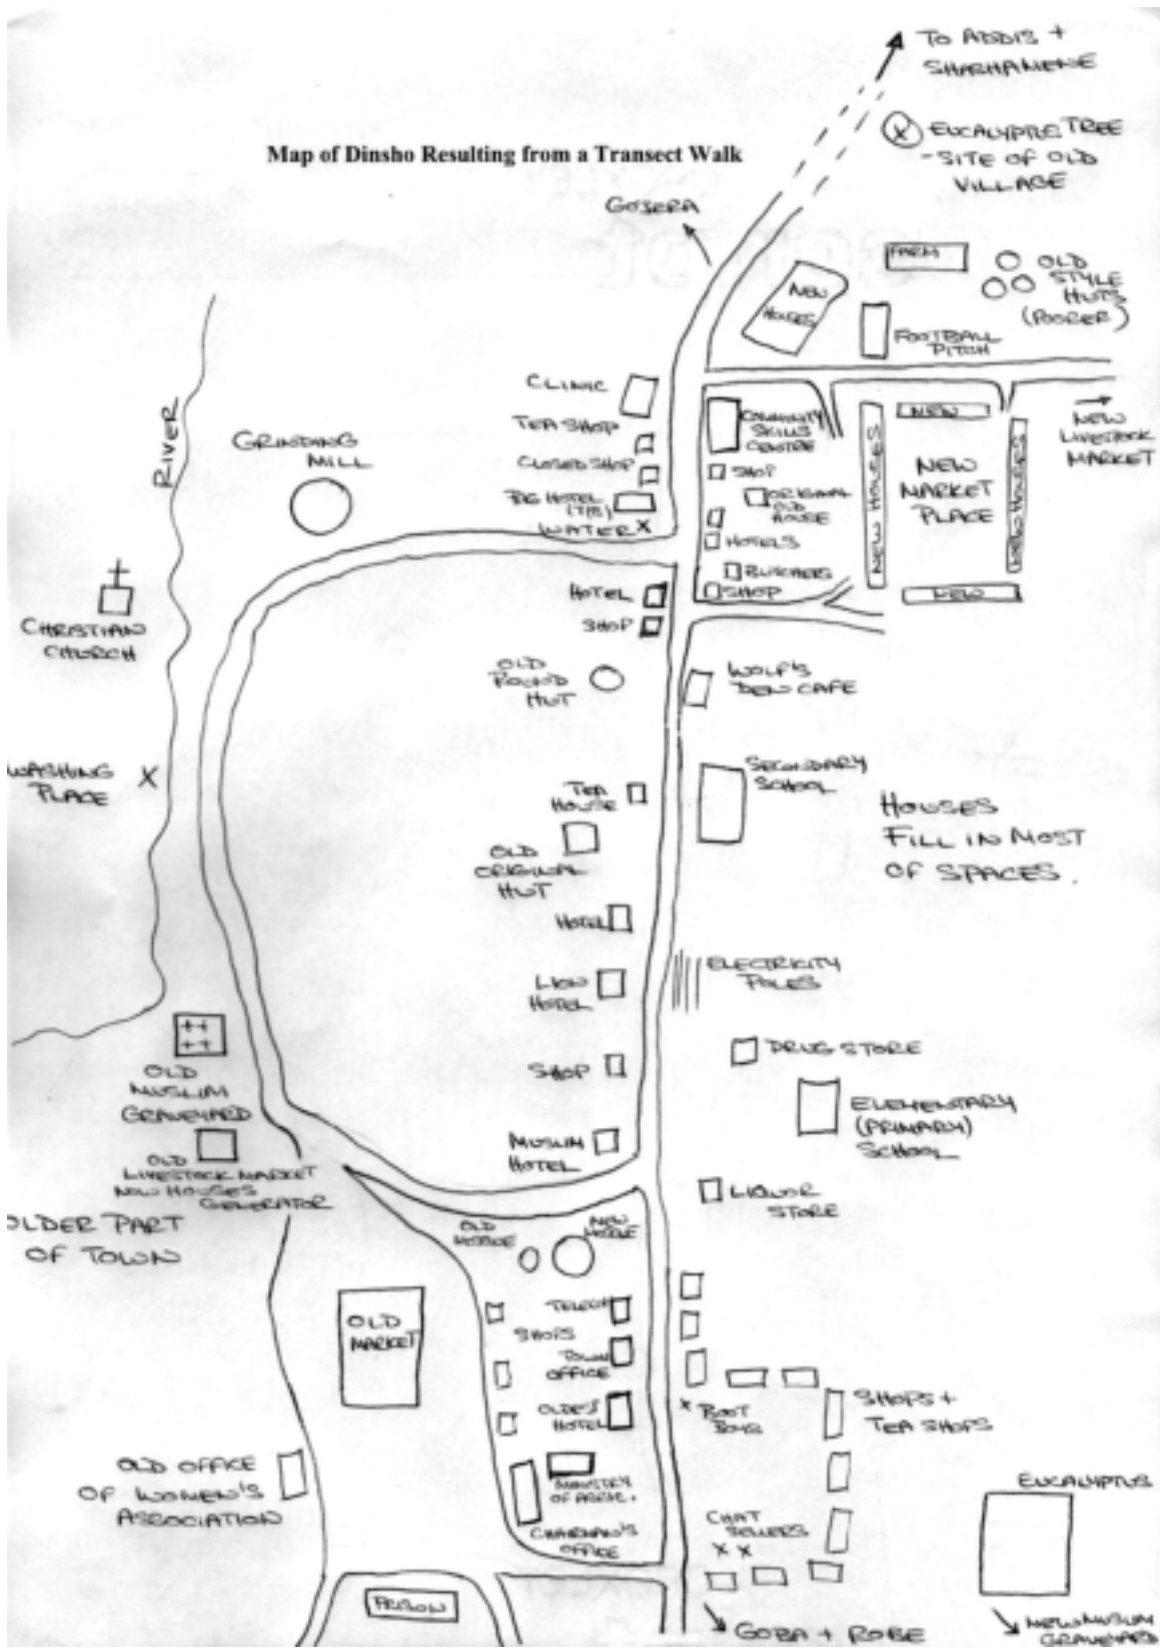 TO ADDIS +
SHASHAMENE
EUCALYPTUS TREE
- SITE OF OLD
VILLAGE
Map of Dinsho Resulting from a Transect Walk
GOJERA
FARM
OLD
STYLE
HUTS
(POORER)
NEW
HOUSES
FOOTBALL
PITCH
CLINIC
TEA SHOP
CLOSED SHOP
BIG HOTEL
WATER X
COMMUNITY
SKILLS
CENTRE
SHOP
ORIGINAL
OLD
HOUSE
HOTELS
BUTCHERS
SHOP
NEW HOUSES
NEW
NEW
MARKET
PLACE
NEW HOUSES
NEW
NEW
LIVESTOCK
MARKET
RIVER
GRINDING
MILL
CHRISTIAN
CHURCH
HOTEL
SHOP
OLD
ROUND
HUT
WOLF'S
DEN CAFE
WASHING
PLACE X
TEA
HOUSE
SECONDARY
SCHOOL
HOUSES
FILL IN MOST
OF SPACES.
OLD
ORIGINAL
HUT
HOTEL
LION
HOTEL
ELECTRICITY
POLES
SHOP
DRUG STORE
ELEMENTARY
(PRIMARY)
SCHOOL
OLD
MUSLIM
GRAVEYARD
OLD
LIVESTOCK MARKET
NOW HOUSES
GENERATOR
MUSLIM
HOTEL
LIQUOR
STORE
OLDER PART
OF TOWN
OLD
MOSQUE
NEW
MOSQUE
OLD
MARKET
TELECOM
SHOPS
TOWN
OFFICE
HOTEL
MINISTRY
OF AGRIC.
CHAIRMAN'S
OFFICE
X BOOT
BOYS
SHOPS +
TEA SHOPS
OLD OFFICE
OF WOMEN'S
ASSOCIATION
CHAT
SELLERS
X X
EUCALYPTUS
PRISON
GOBA + ROBE
NEW MUSLIM
GRAVEYARD